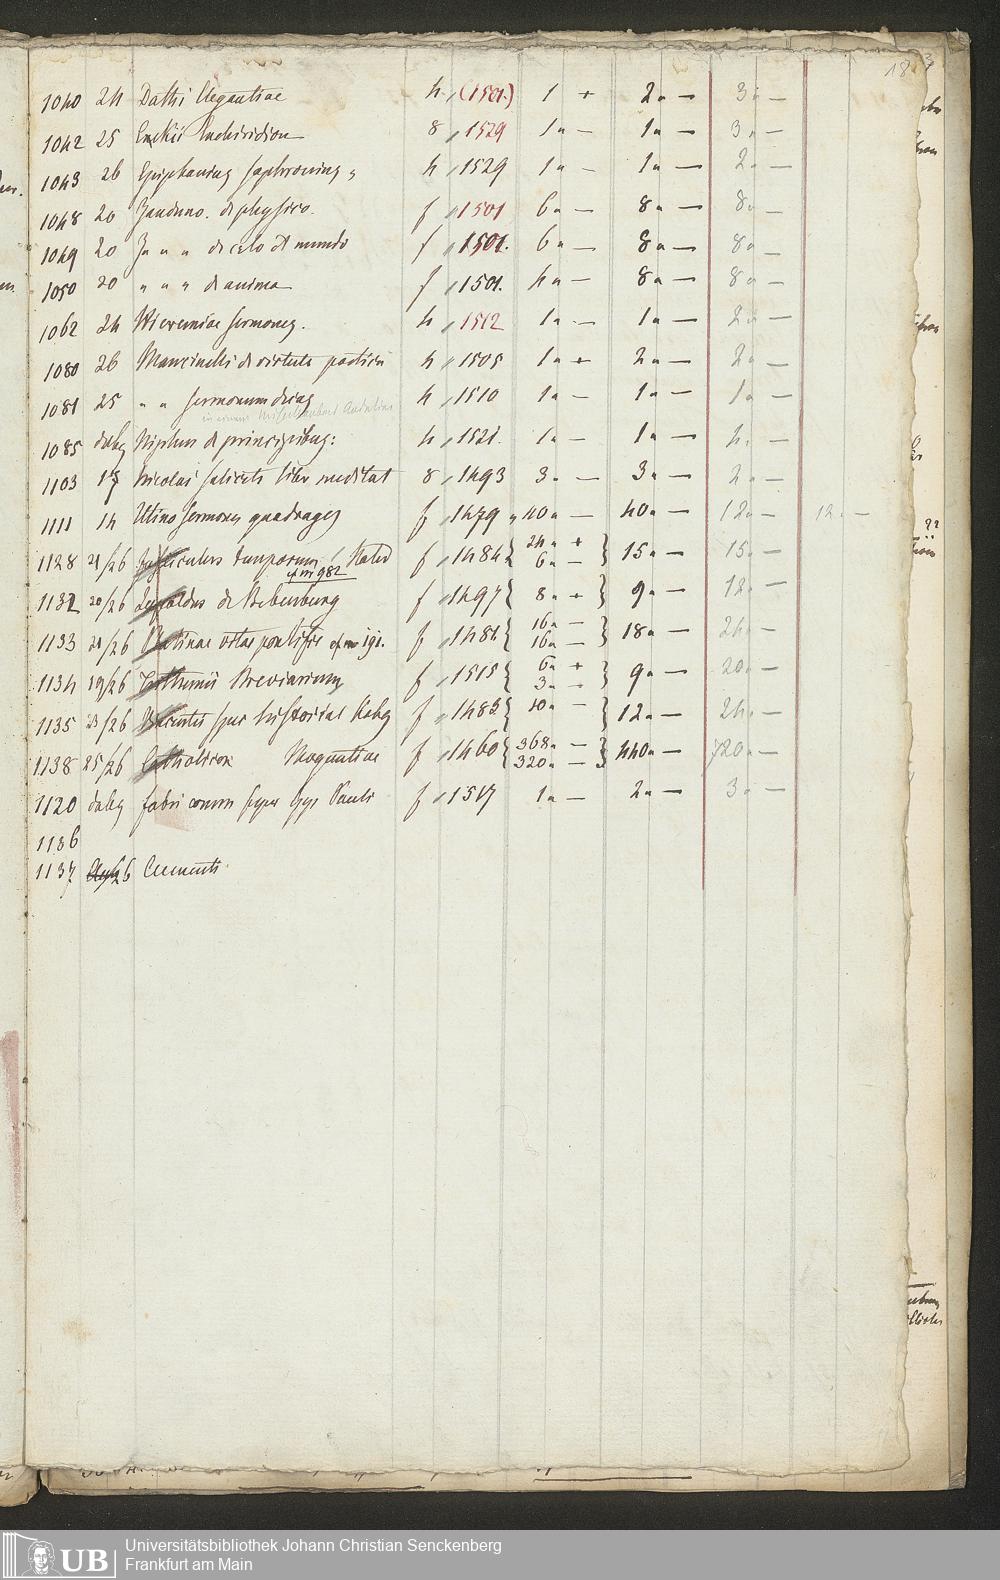 18
1040 24 Dathi Elegantiae 4 „ (1501) 1 + 2 „ — 3 „ —
1042 25 Enchiridion 8 „ 1529 1 „ — 1 „ — 3 „ —
1043 26 Epiphanius sophronius „ 4 „ 1529 1 „ — 1 „ — 2 „ —
1048 20 Janduno. de physico. f „ 1501 6 „ — 8 „ — 8 „ —
1049 20 Ja „ „ de celo et mundo f „ 1501. 6 „ — 8 „ — 8 „ —
1050 20 „ „ „ de anima f „ 1501. 4 „ — 8 „ — 8 „ —
1062 24 Hieremiae sermones. 4 „ 1512 1 „ — 1 „ — 2 „ —
1080 26 Mancinelli de virtute poetica 4 „ 1505 1 „ + 2 „ — 2 „ —
1081 25 „ „ sermonum 4 „ 1510 1 „ — 1 „ — 1 „ —
in einem
1085 Niphus de principibus: 4 „ 1521. 1 „ — 1 „ — 4 „ —
1103 17 Nicolai saliceti liber meditat 8 „ 1493 3 „ — 3 „ — 2 „ —
1111 14 Utino sermones quadrages f „ 1479 „ 40 „ — 40 „ — 12 „ — 12 „ —
1128 21/26 fasciculus temporum f „ 1484 { 24 „ + 6 „ — } 15 „ — 15 „ —
982
1132 20/26 Leopoldus de Bebenburg f „ 1497 { 8 „ + } 9 „ — 12 „ —
1133 21/26 Platinae vitae pontific f „ 1481 { 16 „ — 16 „ — } 18 „ — 24 „ —
1134 19/26 Trithemii Breviarium f „ 1515 { 6 „ + 3 „ — } 9 „ — 20 „ —
1135 23/26 Vincentii spec historiale f „ 1483 { 10 „ — } 12 „ — 24 „ —
1138 25/26 Catholicon Moguntiae f „ 1460 { 368 „ — 320 „ — } 440 „ — 720 „ —
1120 fabri comm super Epp Pauli f „ 1517 1 „ — 2 „ — 3 „ —
1136
1137 26 Clementi
UB
Universitätsbibliothek Johann Christian Senckenberg
Frankfurt am Main